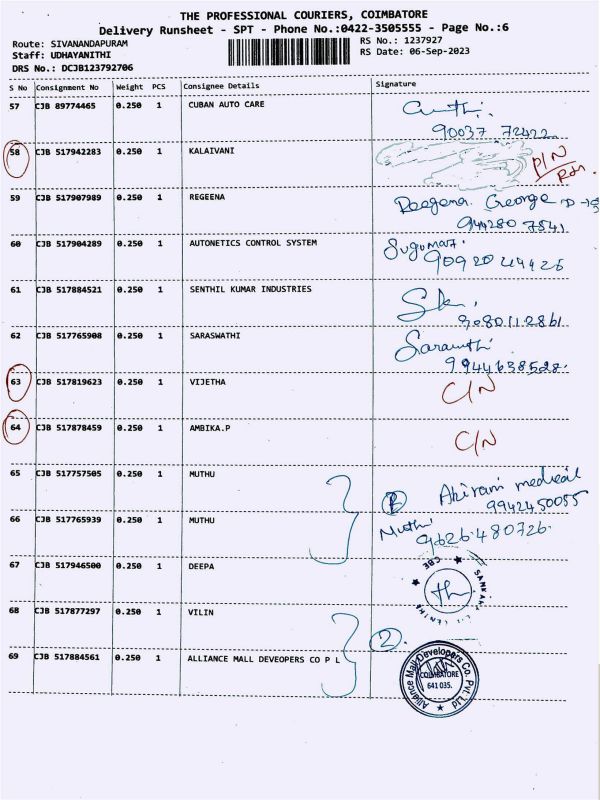 THE PROFESSIONAL COURIERS, COIMBATORE
Delivery Runsheet - SPT - Phone No.:0422-3505555 - Page No.:6
Route: SIVANANDAPURAM
RS No.: 1237927
Staff: UDHAYANITHI
RS Date: 06-Sep-2023
DRS No.: DCJB123792706
S No Consignment No Weight PCS Consignee Details Signature
57 CJB 89774465 0.250 1 CUBAN AUTO CARE
90037 72422
58 CJB 517942283 0.250 1 KALAIVANI P/N
59 CJB 517907989 0.250 1 REGEENA Reegena George
944280 7541
60 CJB 517904289 0.250 1 AUTONETICS CONTROL SYSTEM Sugumar.
61 CJB 517884521 0.250 1 SENTHIL KUMAR INDUSTRIES
9080112861
62 CJB 517765908 0.250 1 SARASWATHI Saraswathi
9944638528.
63 CJB 517819623 0.250 1 VIJETHA C/N
64 CJB 517878459 0.250 1 AMBIKA.P C/N
65 CJB 517757505 0.250 1 MUTHU Abirami medical
9942450055
66 CJB 517765939 0.250 1 MUTHU Muthu
9626480726.
67 CJB 517946500 0.250 1 DEEPA CBE
68 CJB 517877297 0.250 1 VILIN 2.
69 CJB 517884561 0.250 1 ALLIANCE MALL DEVEOPERS CO P L
Alliance Mall Developers Co. Pvt. Ltd
COIMBATORE
641 035.